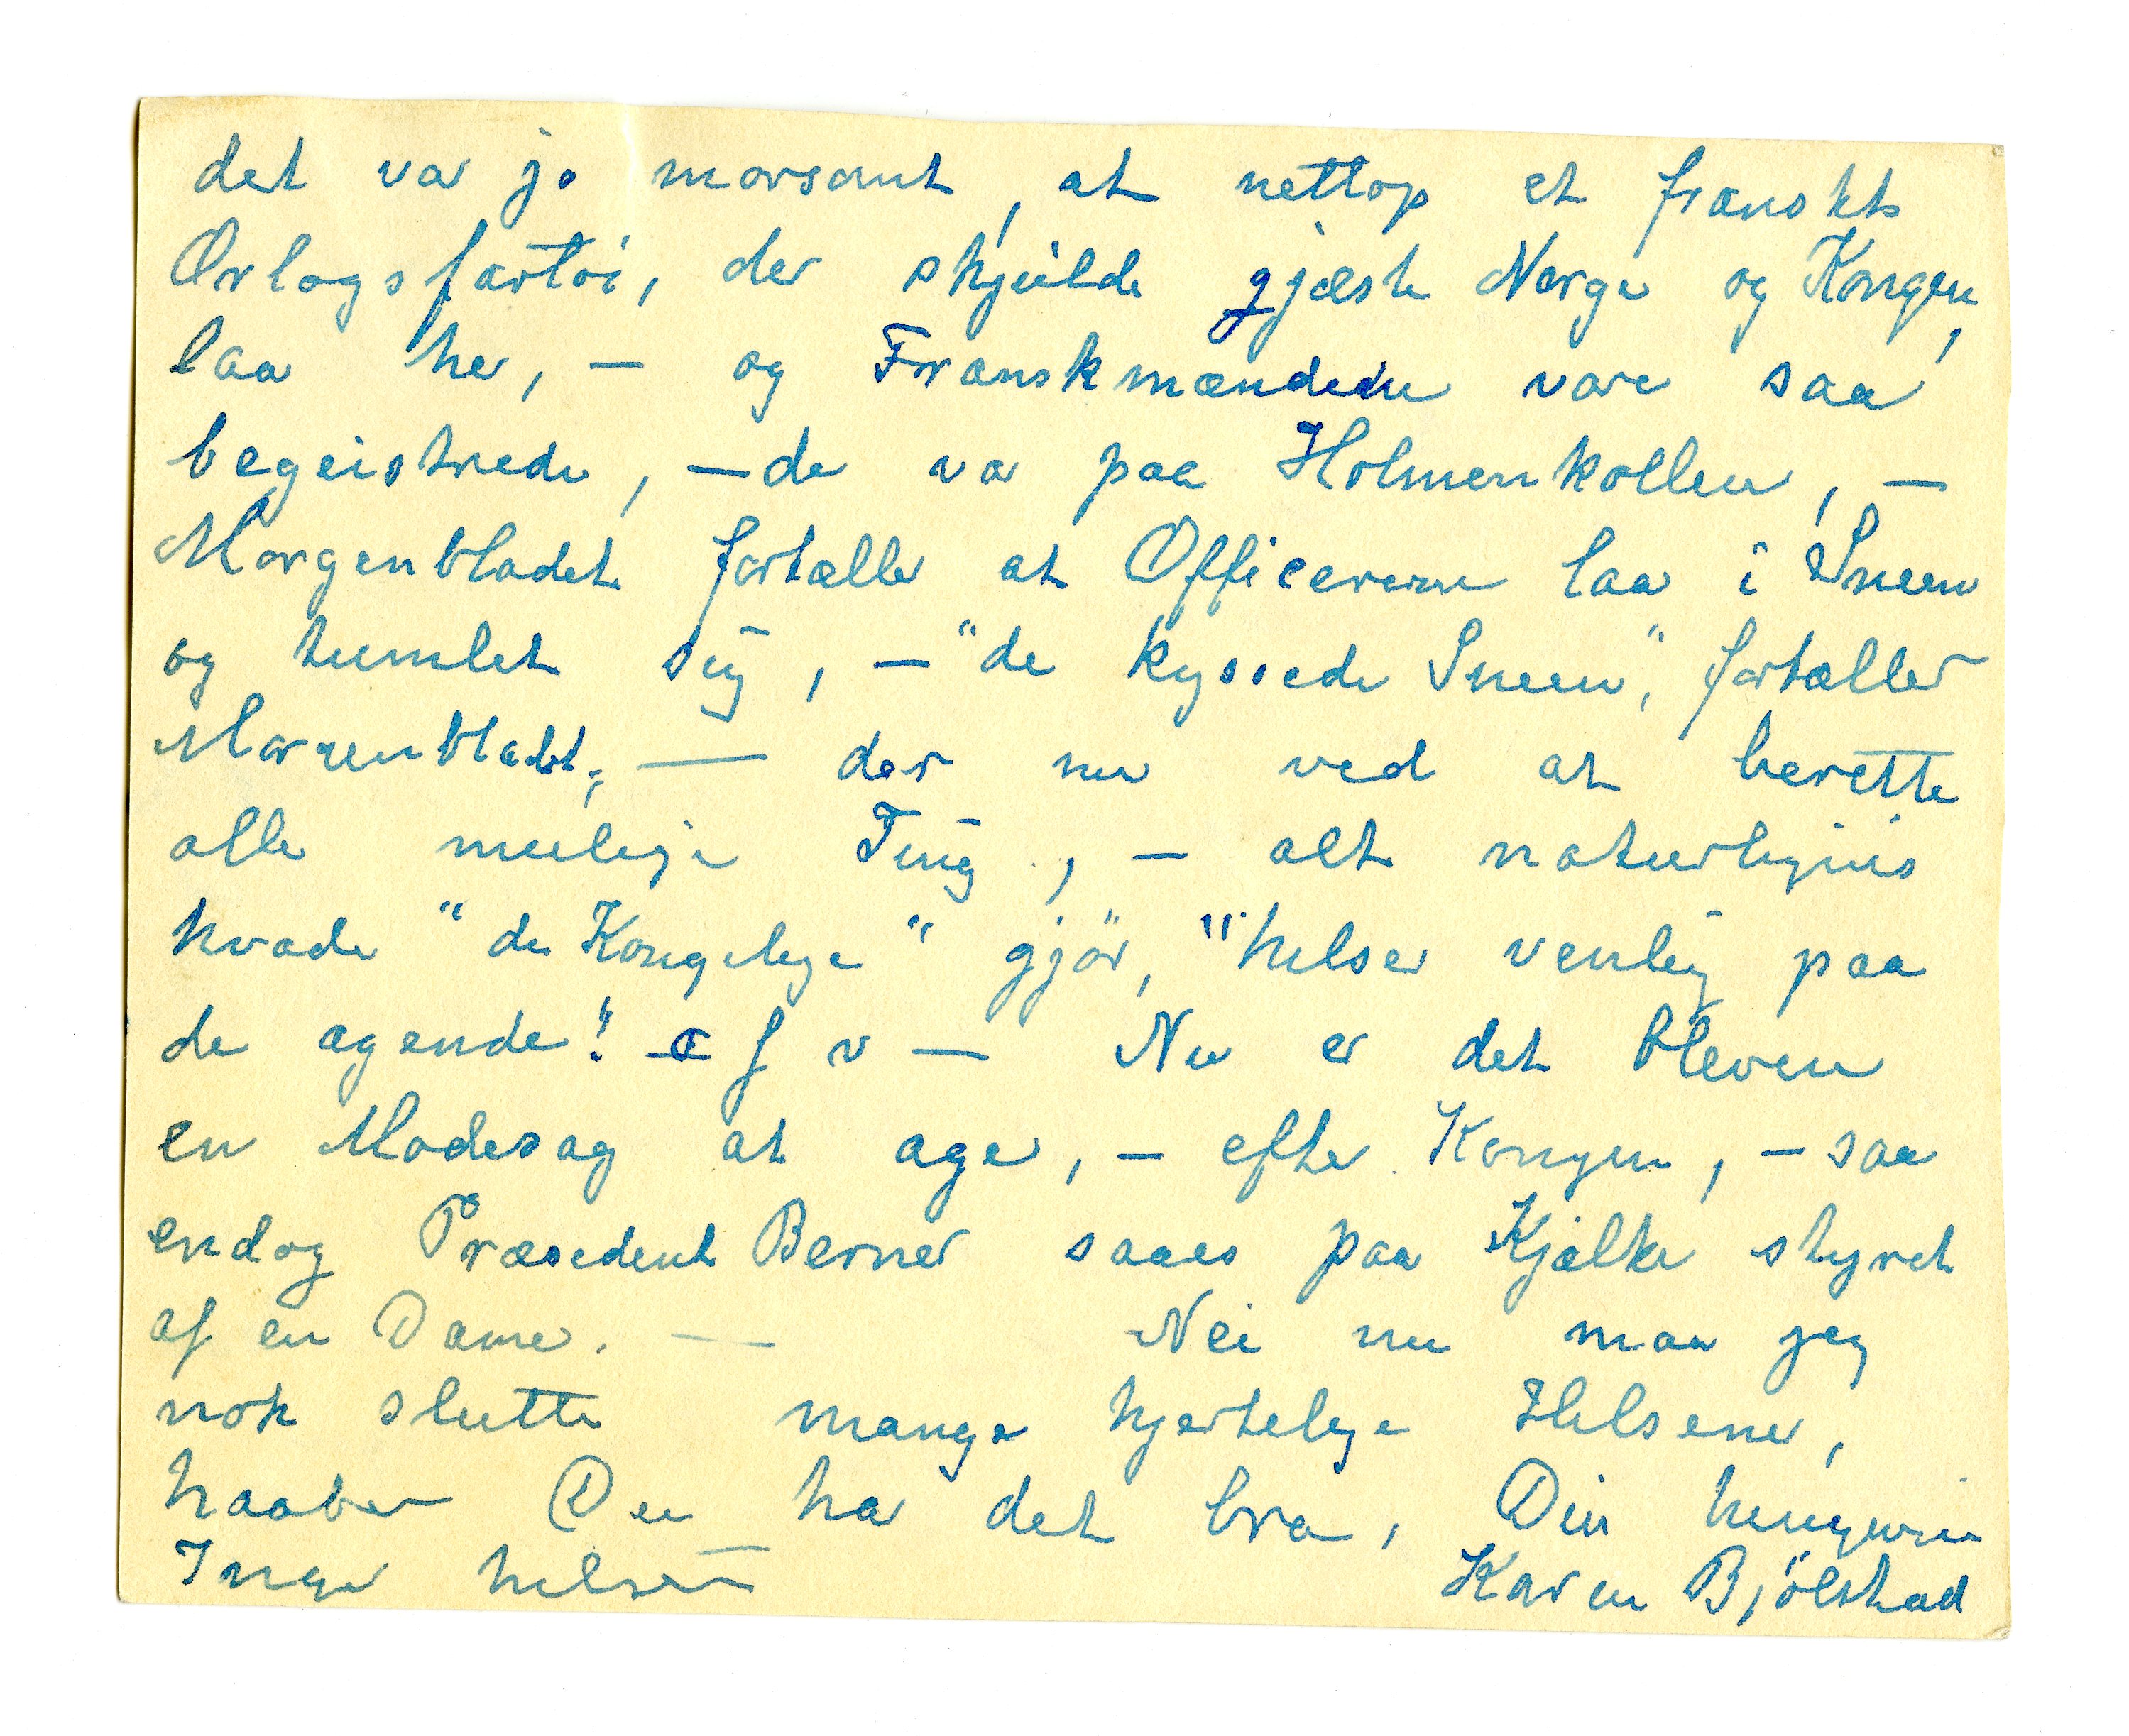 det var jo morsomt, at nettop et franskt
Orlogsfartöi, der skjulde gjæste Norge og Kongen,
laa her, – og Franskmændene vare saa
begeistrede, – de var paa Holmenkollen, –
Morgenbladet fortæller at Officererne laa i Sneen
og tumlet sig, – "de kyssede Sneen", fortæller
Morgenbladet; — der nu ved at berette
alle mulige Ting, – alt naturligvis
hvade "de Kongelige" gjör, "hilser venlig paa
de agende"! o f v — Nu er det bleven
en Modesag at age, – efter Kongen, – saa
endog Præsedent Berner saaes paa Kjælke styret
af en Dame. — Nei nu maa jeg
nok slutte mange hjertelige Hilsener,
haaber Du har det bra, Din hengivne
Inger hilser Karen Bjölstad